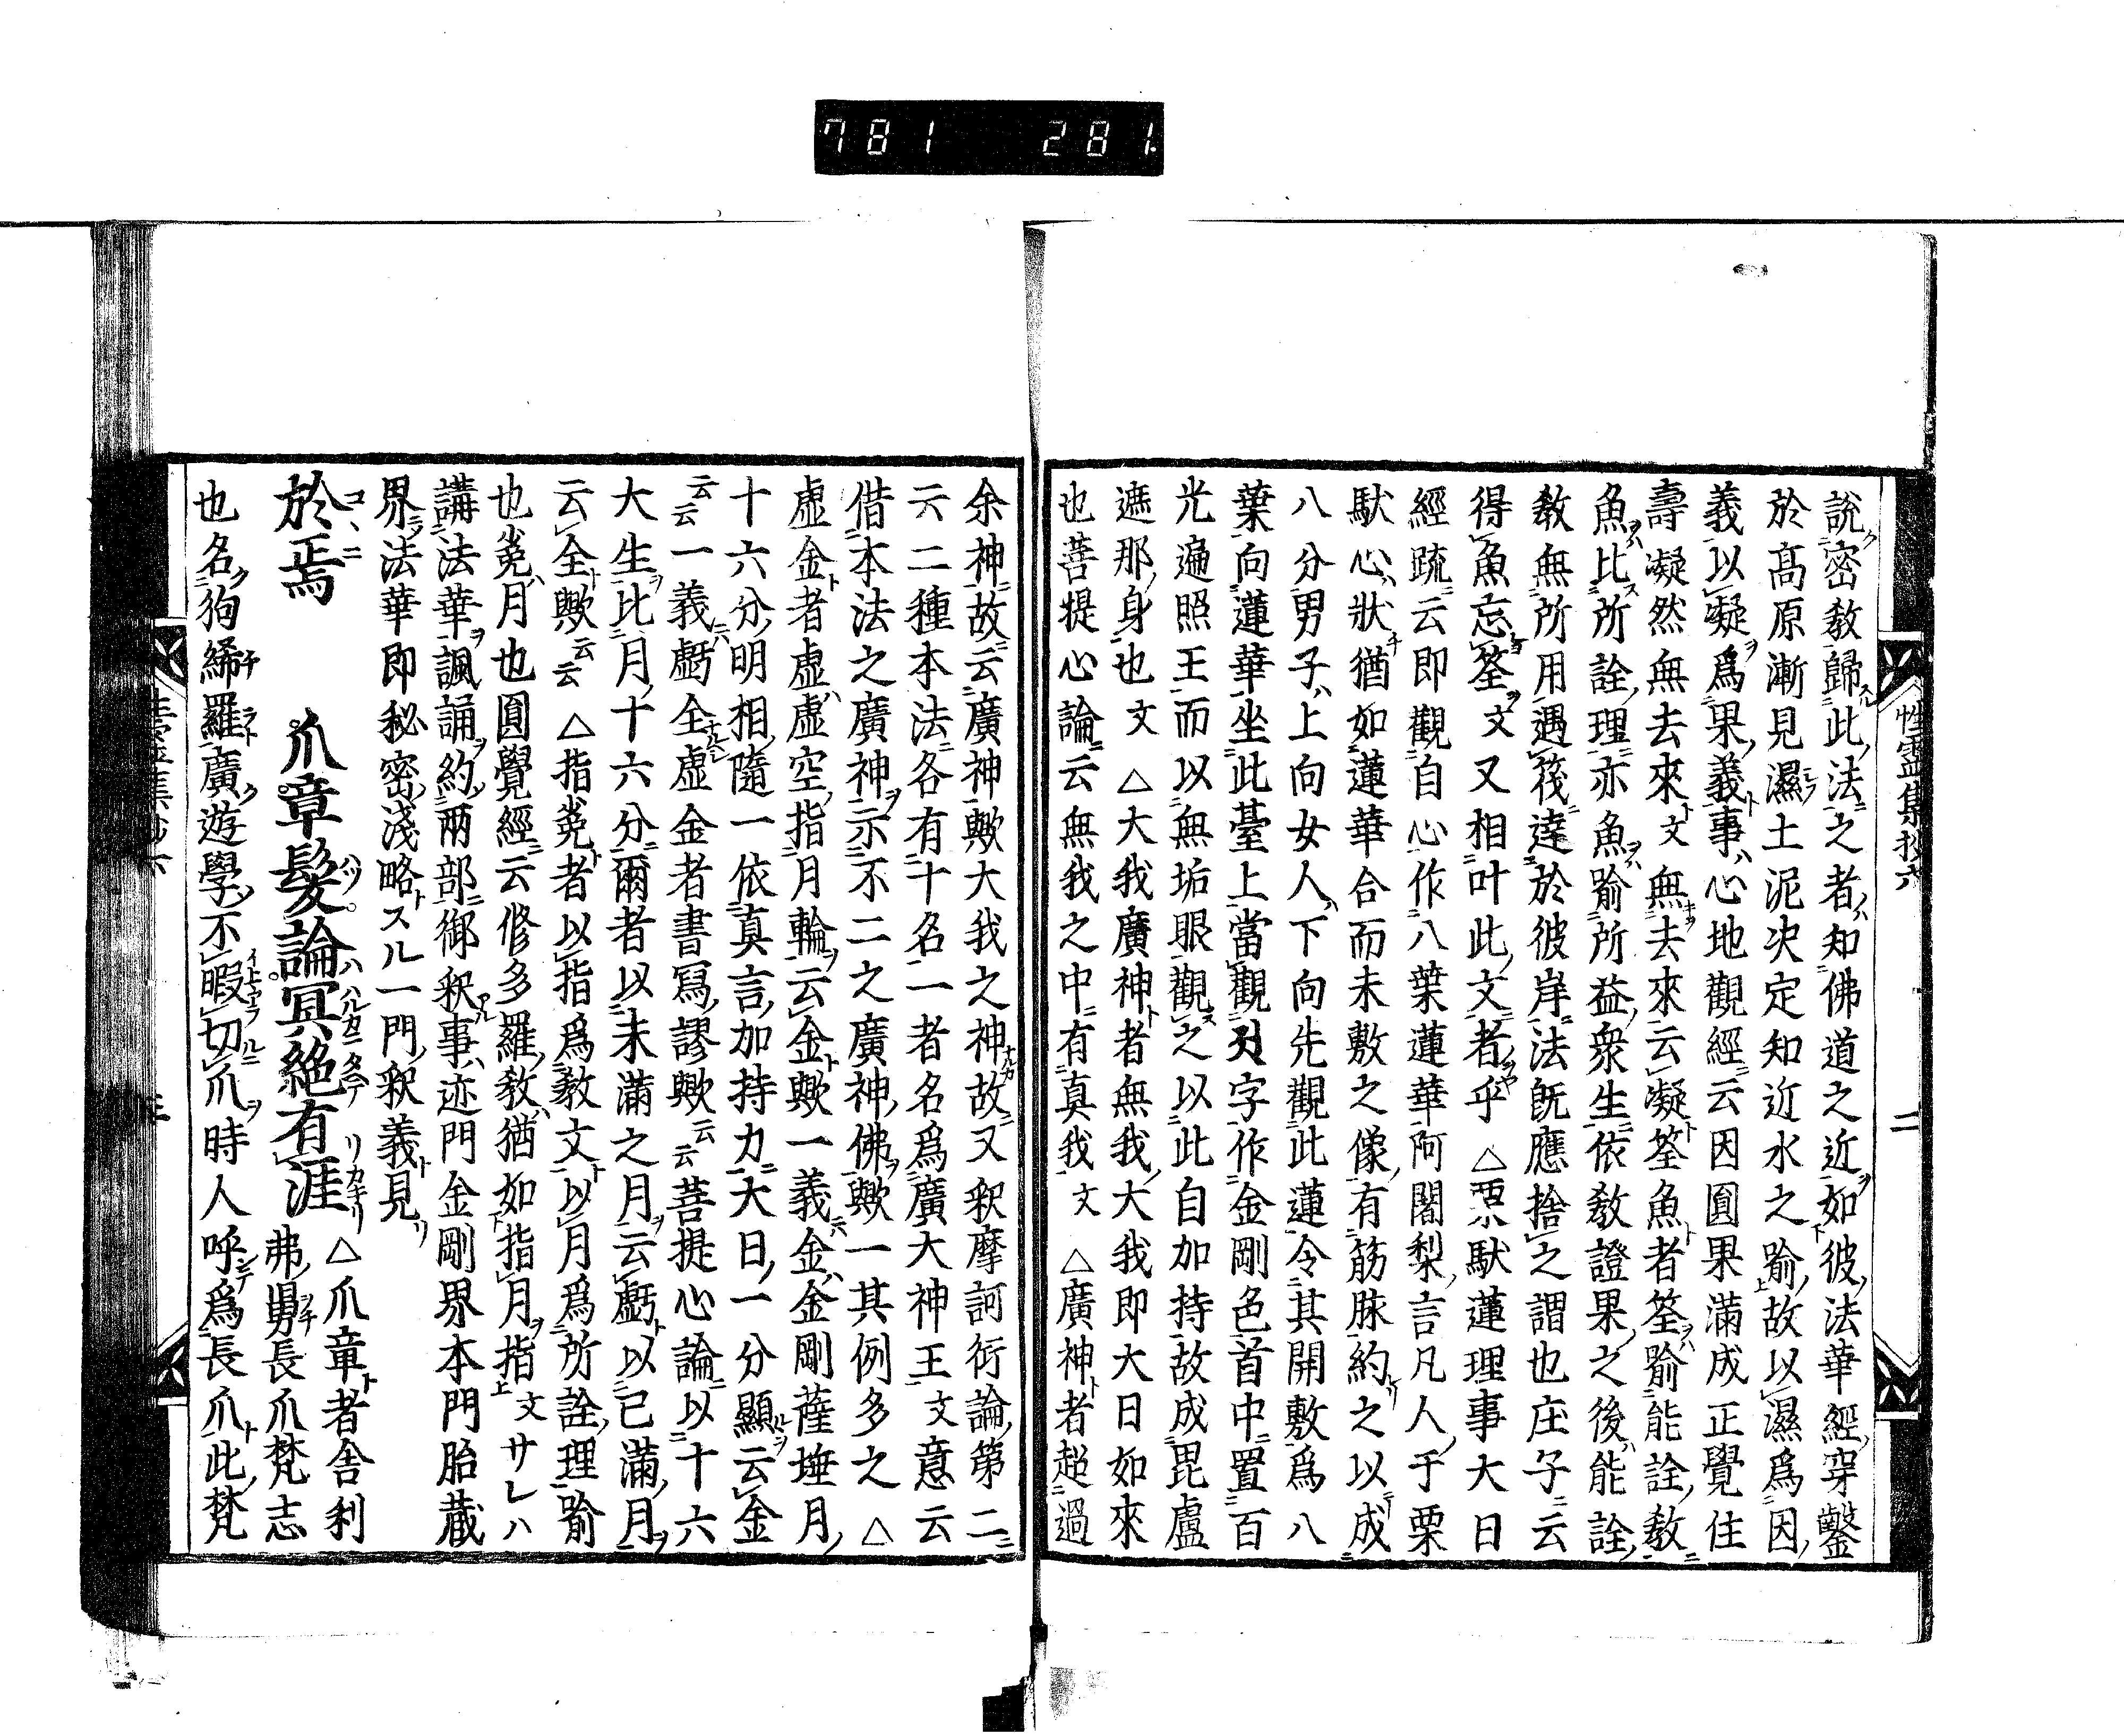 781 281
性霊集抄六 二
説密教歸此法之者知佛道之近如彼法華經穿鑿
於髙原漸見濕土泥决定知近水之喻故以濕爲因
義以凝爲果義事心地觀經云因圓果滿成正覺住
壽凝然無去來文無去來云凝筌魚者筌喻能詮教
魚比所詮理亦魚喻所益衆生依教證果之後能詮
教無所用遇筏達於彼岸法既應捨之謂也庄子云
得魚忘筌文又相叶此文者乎△栗馱蓮理事大日
經疏云即觀自心作八葉蓮華阿闍梨言凡人干栗
馱心狀猶如蓮華合而未敷之像有筋脉約之以成
八分男子上向女人下向先觀此蓮令其開敷爲八
葉向蓮華坐此臺上當觀字作金剛色首中置百
光遍照王而以無垢眼觀之以此自加持故成毘盧
遮那身也文△大我廣神者無我大我即大日如來
也菩提心論云無我之中有真我文△廣神者超過
余神故云廣神歟大我之神故又釈摩訶衍論第二
云二種本法各有十名一者名爲廣大神王文意云
借本法之廣神示不二之廣神佛歟一其例多之△
虚金者虚虚空指月輪云金歟一義金金剛薩埵月
十六分明相隨一依真言加持力大日一分顯云金
云云一義虧全虚金者書寫謬歟云云菩提心論以十六
大生比月十六分爾者以未滿之月云虧以已滿月
云全歟云云△指兎者以指爲教文以月爲所詮理喻
也兎月也圓覺經云修多羅教猶如指月指文サレハ
講法華諷誦約兩部御釈事迹門金剛界本門胎蔵
界法華即秘密淺略スル一門釈義見
於焉 爪章髮論冥絶有涯△爪章者舎利
弗舅長爪梵志
也名狗絺羅廣遊學不暇切爪時人呼爲長爪此梵